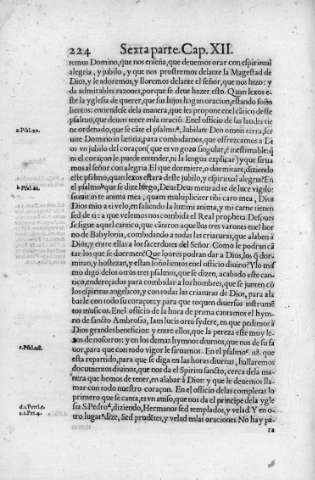 224 Sexta parte. Cap. XII.
remus Domino, que nos enseña, que deuemos orar con espiritual
alegria, y jubilo, y que nos prostremos delante la Magestad de
Dios, y le adoremos, y lloremos delante el señor, que nos hizo: y
da admirables razones, porque se deue hazer esto. Quan lexos e-
ste la yglesia de querer, que sus hijos hagan oracion, estando soño
lientos: entiendese de la manera, que les propone en el cãtico deste
psalmo, que deuen tener en la oraciõ. En el officio de las laudes tie
a.Psal.99. ne ordenado, que se cãte el psalmo a, Jubilate Deo omnis terra, ser
uite Domino in lætitia, para combidarnos, que offrezcamos a
un jubilo del coraçon, que es vn gozo singular, è inestimable, q̃
ni el coraçon le puede entender, ni la lengua explicar: y que sirua
mos al señor con alegria. El que dormiere, o dormitare, diziendo
este psalmo, quan lexos estara deste jubilo, y espiritual alegria? En
el psalmo que se dize luego, Deus Deus meus ad te de luce vigilo:
sitiuit in te anima mea, quam multipliciter tibi caro mea, Dios
Dios mio a ti velo, en saliendo la lumbre anima, y mi carne tienen
sed de ti: a que velemos nos combida el Real propheta. Despues
se sigue aquel cantico, que cãtaron aquellos tres varones en el hor
no de Babylonia, combidando a todas las criaturas, que alaben a
Dios, y entre ellas a los sacerdotes del Señor. Como le podran cã
tar los que se duermen? Que loores podran dar a Dios, los q̃ dor
miran, y bostezan, y estan soñolientos en el officio diuino? Y lo mis
mo digo delos otros tres psalmos, que se dizen, acabado este can-
tico, endereçados para combidar a los hombres, que se junten cõ
los espiritus angelicos, y con todas las criaturas de Dios, para ala
barle con todo su coraçon: y para que toquen diuersos instrumẽ
tos musicos. En el officio de la hora de prima cantamos el hym-
no de sancto Ambrosio, Iam lucis orto sydere, en que pedimos a
Dios grandes beneficios: y entre ellos, que la pereza este muy le-
xos de nosotros: y en los demas hymnos diurnos, que nos de su fa
c.Psal.118. uor, para que con todo vigor le siruamos. En el psalmo c 118. que
esta repartido, para que se diga en las horas diurnas, hallaremos
documentos diuinos, que nos da el Spiritu sancto, cerca dela ma
nera que hemos de tener, en alabar à Dios: y que le deuemos lla-
mar con todo nuestro coraçon. En el officio de las completas lo
primero que se canta, es vn auiso, que nos da el principe dela ygle
sia S. Pedro, diziendo, Hermanos sed templados, y velad. Y en o-
tro lugar dize, Sed prudẽtes, y velad en las oraciones. No hay pa-